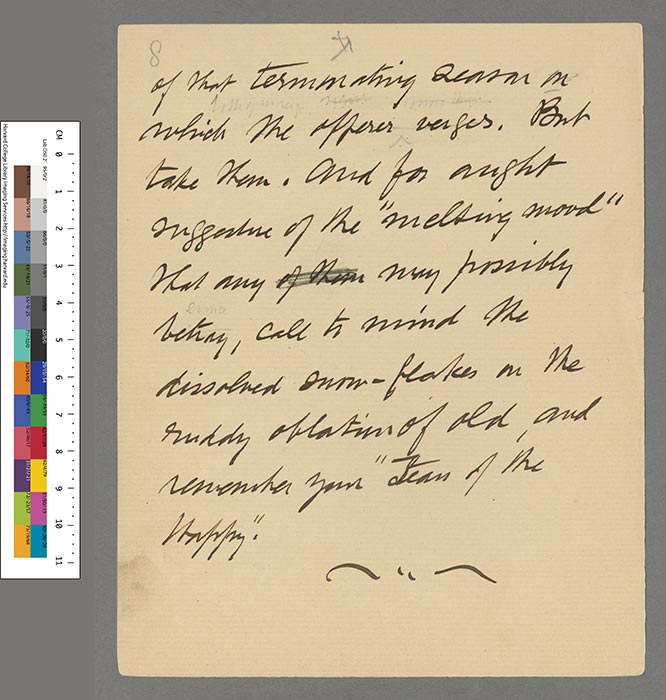 8
of that terminating season on
which the offerer verges. But
take them. And for aught
suggestive of the "melting mood"
that any of them may possibly
betray, call to mind the
dissolved snow-flakes on the
ruddy oblation of old, and
remember your "Tears of the
Happy".
CM 0 1 2 3 4 5 6 7 8 9 10 11
Harvard College Library Imaging Services http://imaging.harvard.edu